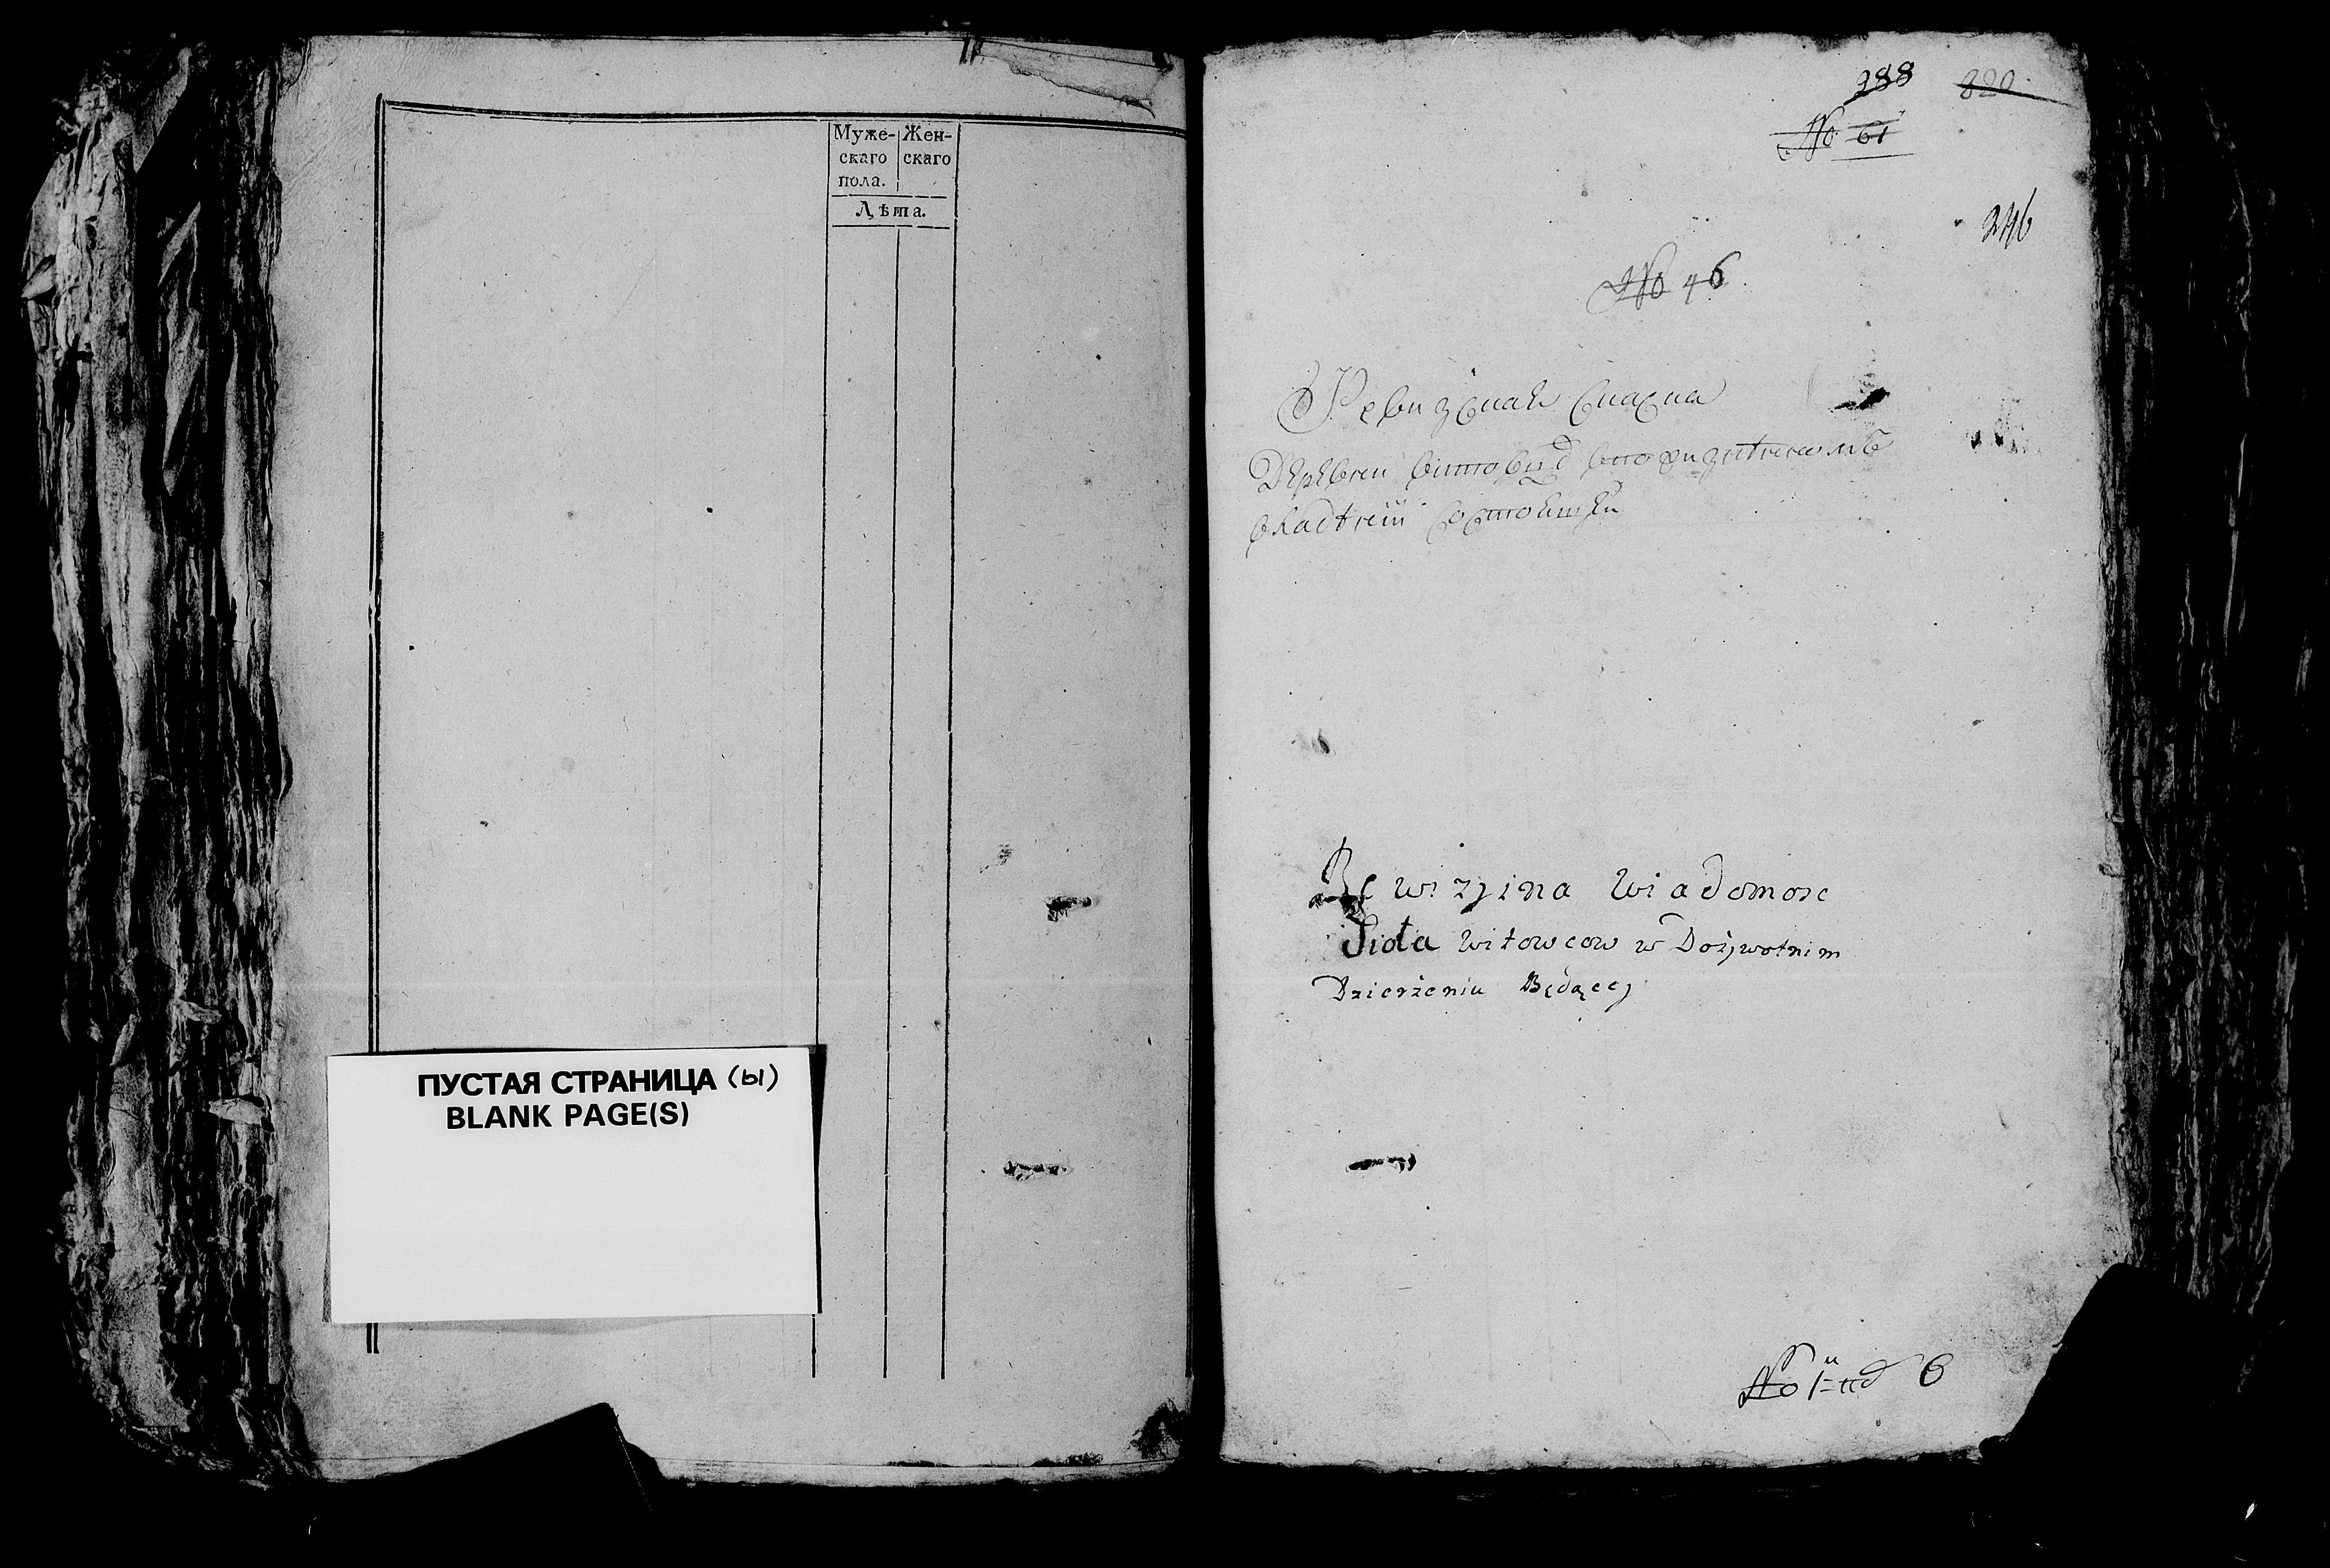 Муже-
скаго
пола.
Жен-
скаго
Лѣта.
ПУСТАЯ СТРАНИЦА (ы)
BLANK PAGE(S)
288
220
No 61
246
No 46
Ревизская Сказка
Деревни витовец
владѣнїи состоящей
Rewizyina Wiadomosc
Sioła Witowcow w Dożywotnim
Dzierżeniu Będącey
No 1
6